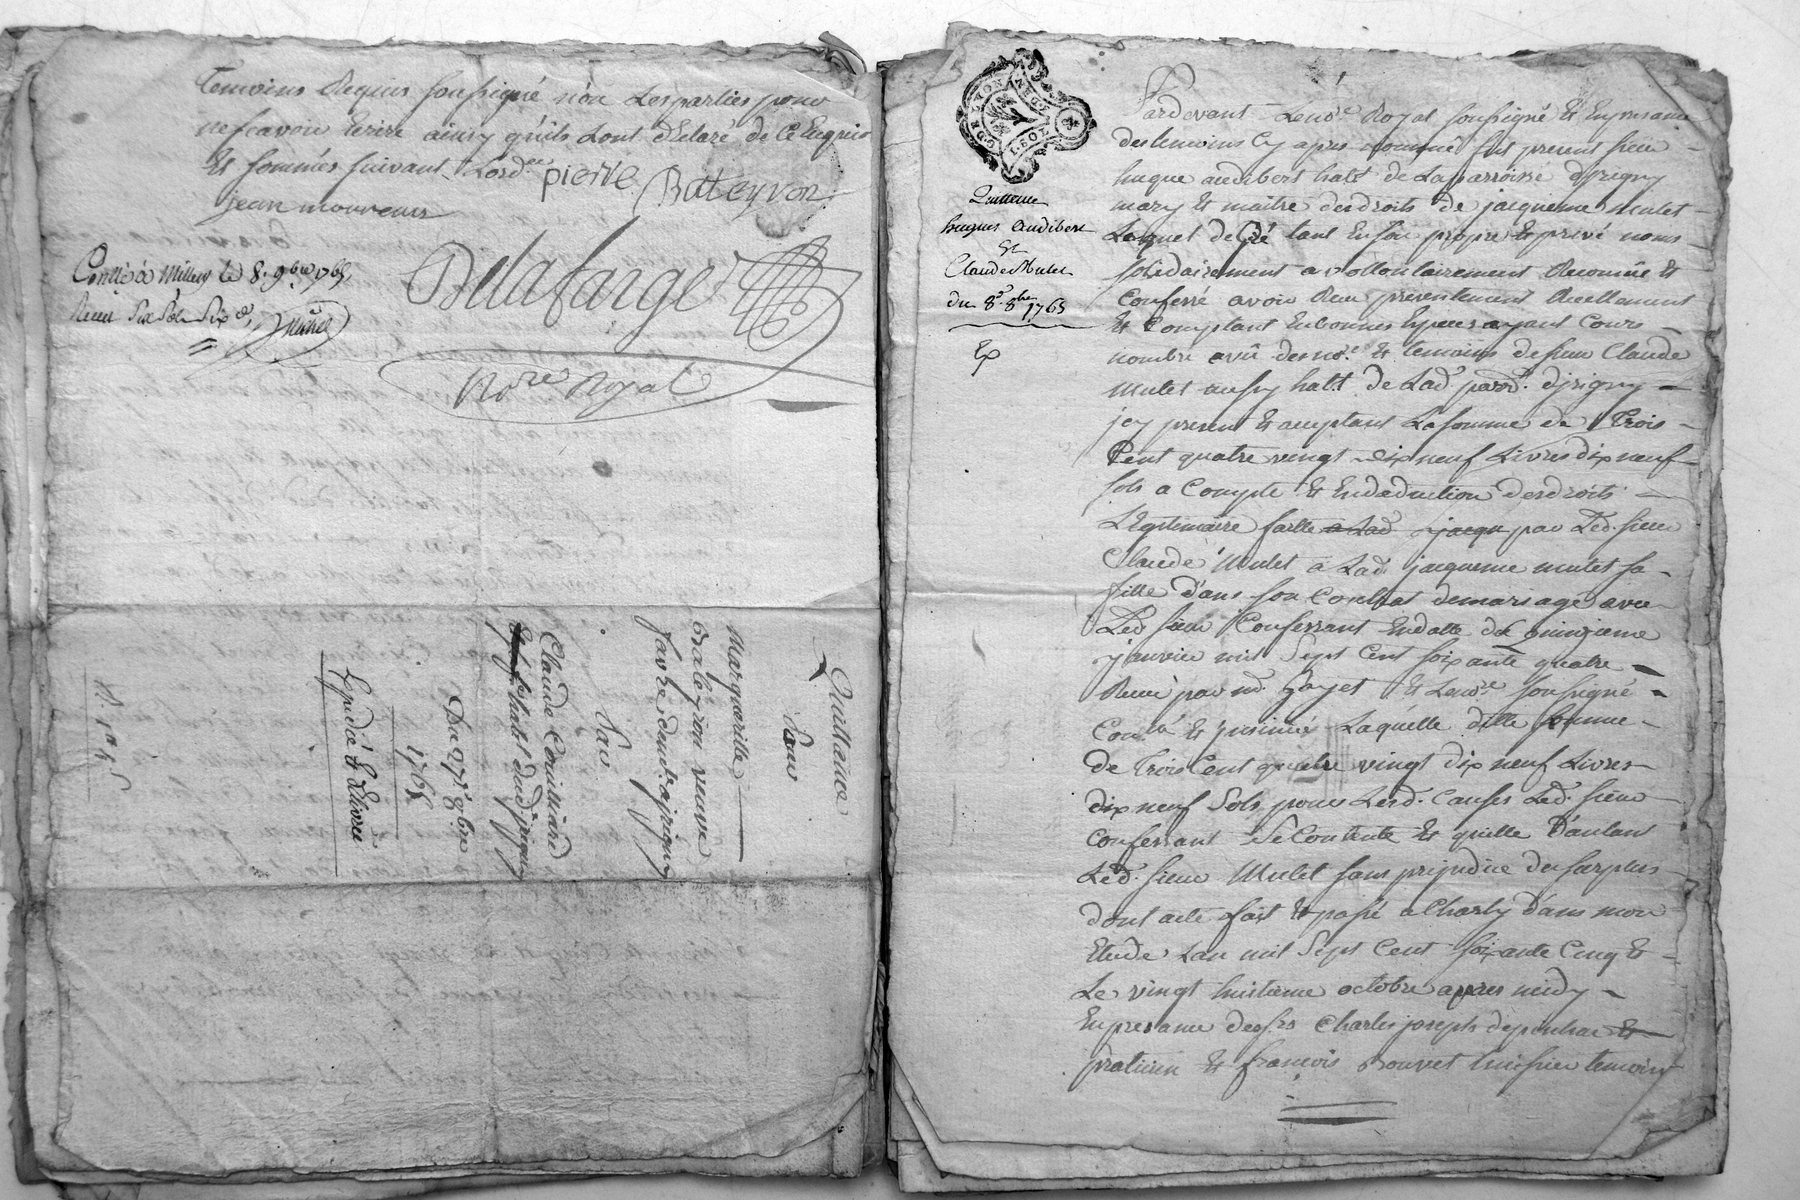 temoins Requis soussigné non Les parties pour
ne scavoir Ecrire ainsy qu'ils Lont d'Eclaré de Ce Enquis
Et sommés suivant Lord.ce pierre Bateyron
jean mouveur
Conllé à Millery le 8. 9bre 1765
Receu Six Sols Six d.
Delafarge
No.re Royal
Quittance
Pour
Margueritte
Baleyron veuve
favre dem.t a jrigny
Par
Claude Couilliard
hab.t dud. jrigny
Du 27.e 8bre
1765
Expedié & Delivrée
GEN. DE LYON
2.SOLS
Quittance
hugues Audibert
Et
Claude Mulet
du 28. 8bre 1765
Ex
Pardevant Le no.re Royal soussigné Et En presance
des temoins Cy apres nommés fut present sieur
hugue audibert habt de La parroisse d'jrigny
mary Et maitre des droits de jacqueme mulet
Lequel de Gré tant En son propre Et privé noms
solidairement a vollontairement Reconnû Et
Conferré avoir Reçu presentement Reellement
Et Comptant En bonnes Especes ayant Cours
nombre a vû des no.re Et temoins de sieur Claude
mulet aussy habt de Lad. parr. d'jrigny
jcy present Et acceptant La somme de Trois
Cent quatre vingt dix neuf Livres dix neuf
sols a Compte Et En deduction des droits
Legitimaire faitte a Lad. jacqu par Led. sieur
Claude Mulet a Lad. jacqueme mulet sa
fille dans son Contrat de mariage avec
Led. sieur Confessant En datte du quinzieme
janvier mil Sept Cent soixante quatre
Receu par me. Gayet Et Le no.re soussigné
Con.lé Et jnsinué Laquelle ditte somme
de Trois Cent quatre vingt dix neuf Livres
dix neuf Sols pour Lesd. Causes Led. sieur
Confessant Se Contente Et quitte D'autant
Led. sieur Mulet sans prejudice du surplus
dont acte fait Et passé a Charly Dans mon
Etude Lan mil Sept Cent soixante Cinq Et
Le vingt huitieme octobre apres midy
En presance de srs Charles joseph depinhac Et
praticien Et francois Bouvet huissier temoins